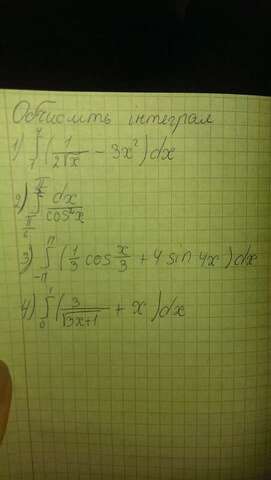 Обчислить інтеграл
1) ∫₁⁴ (1/(2√x) - 3x²) dx
2) ∫ dx/cos²x
3) ∫_{-π}^{π} (1/3 cos x/3 + 4 sin 4x) dx
4) ∫₀¹ (3/√(3x+1) + x) dx